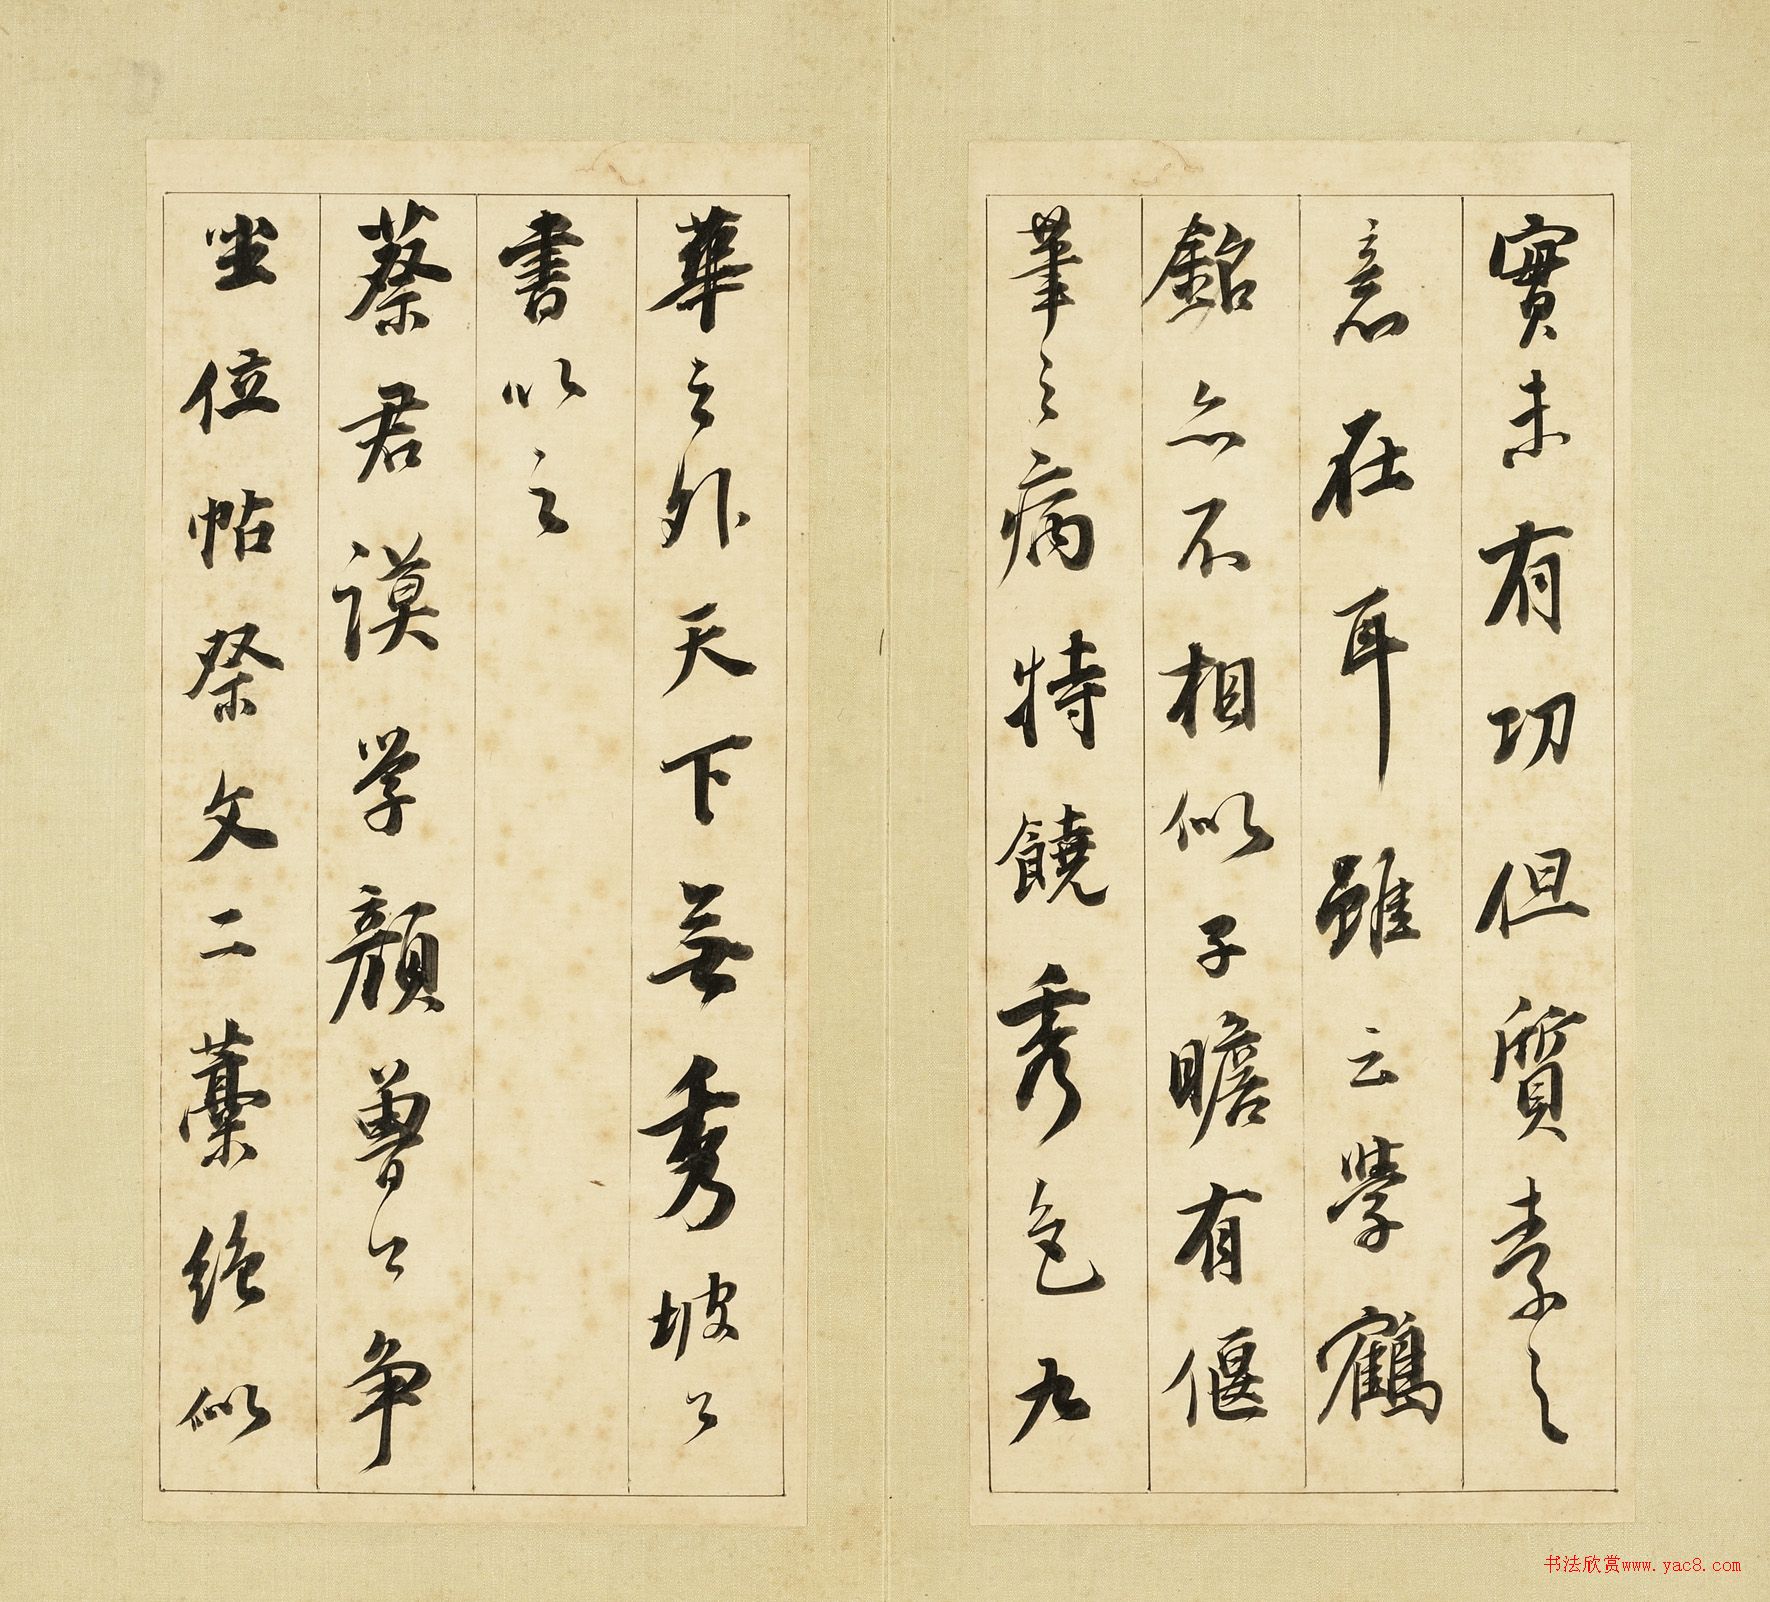 實未有功但質素之
意在耳雖云學鶴
銘亦不相似子瞻有偃
筆之病特饒秀色九
華之外天下無秀坡公
書以之
蔡君謨學顏魯公爭
坐位帖祭文二藁絕似
书法欣赏www.yac8.com